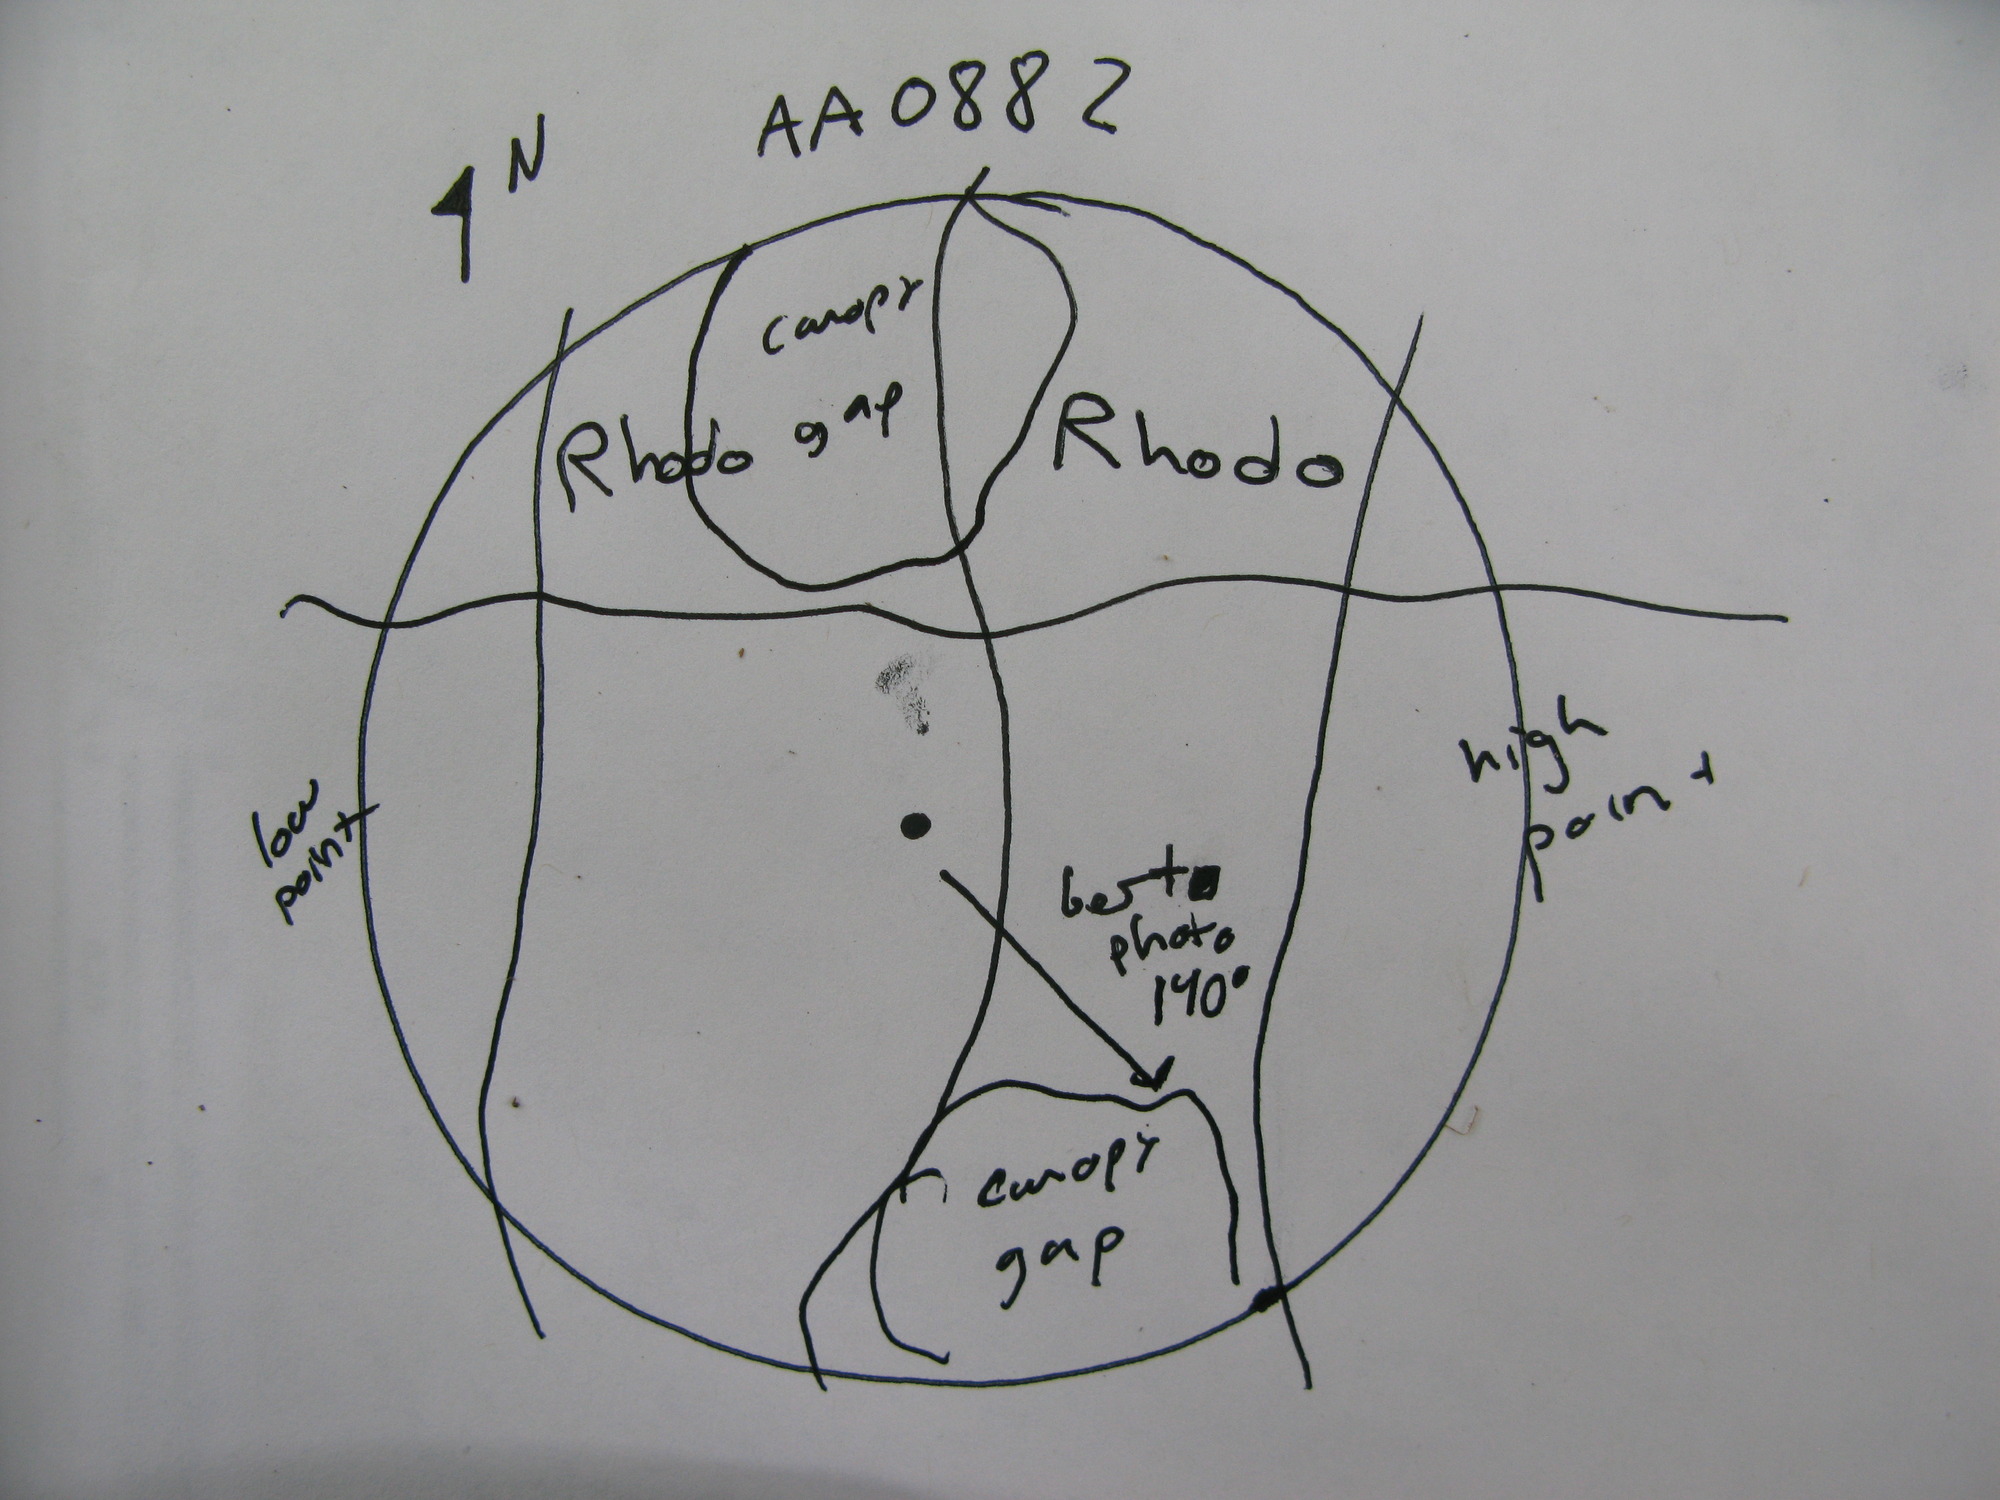 AA0882
N
canopy
gap
Rhodo
Rhodo
high
point
low
point
best
photo
140°
canopy
gap